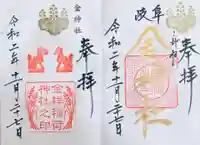 奉拝
金神社
令和二年十一月二十七日
金祥稲荷
神社之印
奉拝
岐阜
金神社
令和二年十一月二十七日